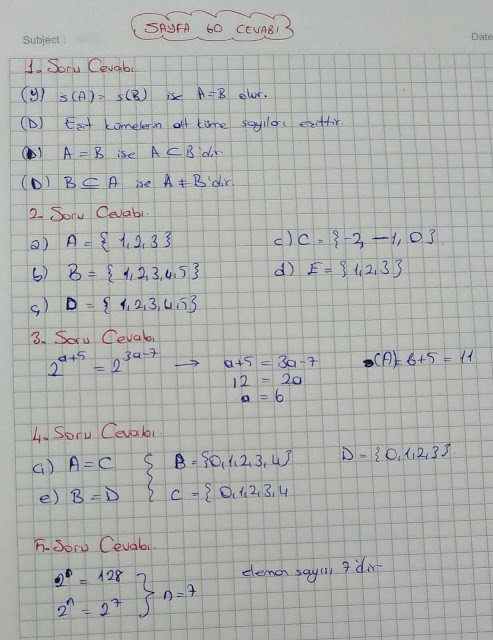 SAYFA 60 CEVABI
Subject :
Date
1- Soru Cevabı
(Y) s(A) = s(B) ise A=B olur.
(D) Eşit kümelerin alt küme sayıları eşittir.
(D) A = B ise A ⊂ B'dir.
(D) B ⊆ A ise A ≠ B'dir.
2- Soru Cevabı
a) A = { 1,2,3 }
c) C = { -2, -1, 0 }
b) B = { 1,2,3,4,5 }
d) E = { 1,2,3 }
ç) D = { 1,2,3,4,5 }
3. Soru Cevabı
2^a+5 = 2^3a-7 → a+5 = 3a-7 s(A)= 6+5 = 11
12 = 2a
a = 6
4- Soru Cevabı
a) A = C { B = {0,1,2,3,4} D = {0,1,2,3}
e) B = D { C = { 0,1,2,3,4
5- Soru Cevabı
2^n = 128 } A=7 eleman sayısı 7'dir
2^n = 2^7